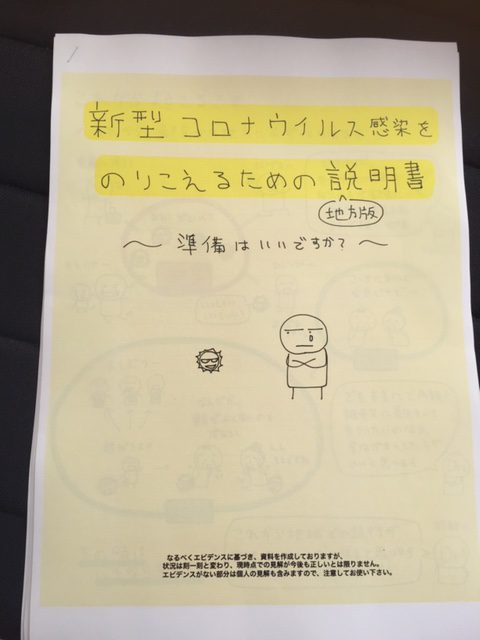 新型コロナウイルス感染を
のりこえるための説明書
地方版
〜 準備はいいですか? 〜
なるべくエビデンスに基づき、資料を作成しておりますが、
状況は刻一刻と変わり、現時点での見解が今後も正しいとは限りません。
エビデンスがない部分は個人の見解も含みますので、注意してお使い下さい。